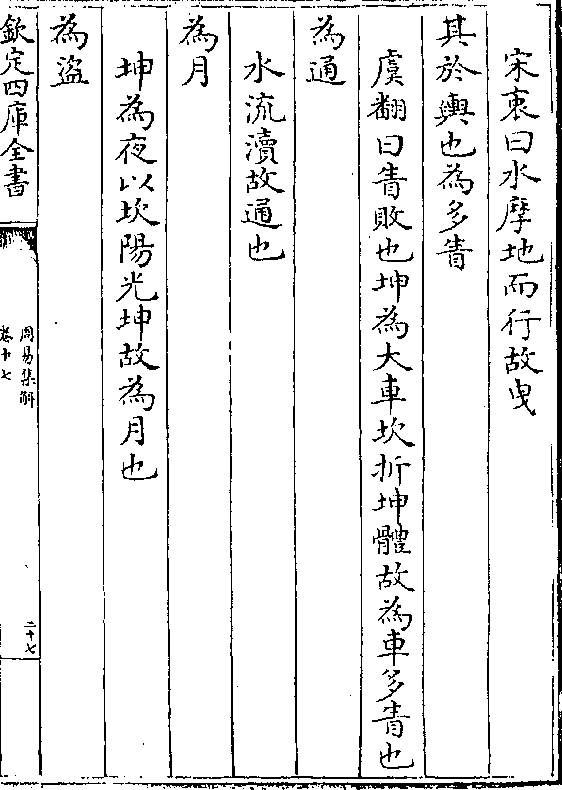 宋衷曰水摩地而行故曳
其於輿也為多眚
虞翻曰眚敗也坤為大車坎折坤體故為車多眚也
為通
水流瀆故通也
為月
坤為夜以坎陽光坤故為月也
為盜
欽定四庫全書
周易集解
卷十七
二十七